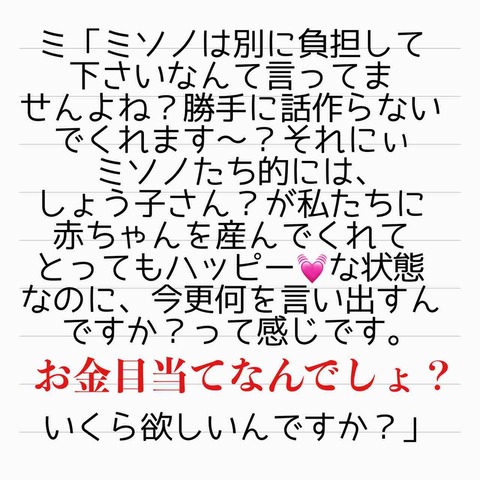 ミ「ミソノは別に負担して
下さいなんて言ってま
せんよね？勝手に話作らない
でくれます〜？それにぃ
ミソノたち的には、
しょう子さん？が私たちに
赤ちゃんを産んでくれて
とってもハッピー💓な状態
なのに、今更何を言い出すん
ですか？って感じです。
お金目当てなんでしょ？
いくら欲しいんですか？」